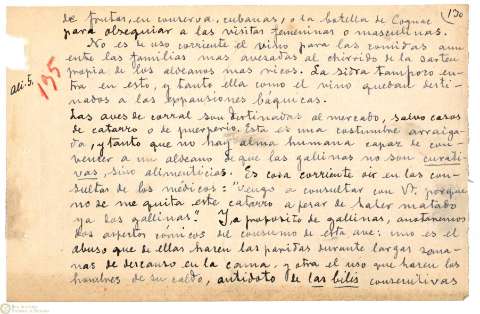 de frutas, en conserva, cubanas, o la botella de Cognac
130
para obsequiar a las visitas femeninas o masculinas.
No es de uso corriente el vino para las comidas aun
entre las familias mas avezadas al chirrido de la sarten
ali-5.
195
propia de los aldeanos mas ricos. La sidra tampoco en-
tra en esto, y tanto ella como el vino quedan desti-
nados a las expansiones báquicas.
Las aves de corral son destinadas al mercado, salvo casos
de catarro o de puerperio. Esta es una costumbre arraiga-
da, y tanto que no hay alma humana capaz de con-
vencer a un aldeano de que las gallinas no son curati-
vas, sino alimenticias. Es cosa corriente oir en las con-
sultas de los médicos: "Vengo a consultar con V. porque
no se me quita este catarro a pesar de haber matado
ya dos gallinas". Y, a propósito de gallinas, anotaremos
dos aspectos cómicos del consumo de esta ave: uno es el
abuso que de ellas hacen las paridas durante largas sema-
nas de descanso en la cama, y otra el uso que hacen los
hombres de su caldo, antidoto de las bilis consecutivas